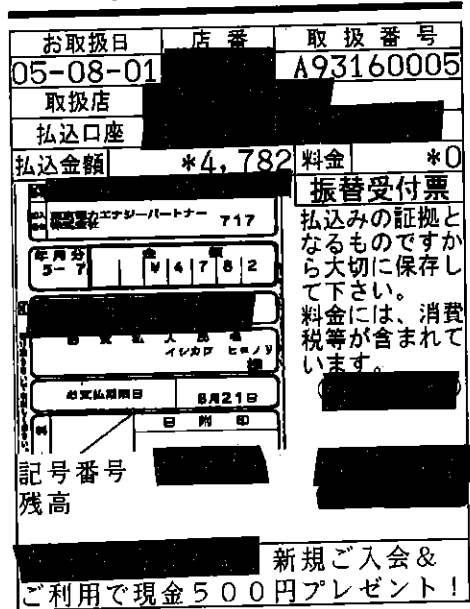 お取扱日 店番 取扱番号
05-08-01 A93160005
取扱店
払込口座
払込金額 *4,782 料金 *0
振替受付票
払込みの証拠と
なるものですか
ら大切に保存し
て下さい。
料金には、消費
税等が含まれて
います。
東京電力エナジーパートナー
株式会社 717
年月分 金額
5-7 ¥4782
イシカワ ヒロノリ
様
お支払期限日 8月21日
日附印
記号番号
残高
新規ご入会&
ご利用で現金500円プレゼント!